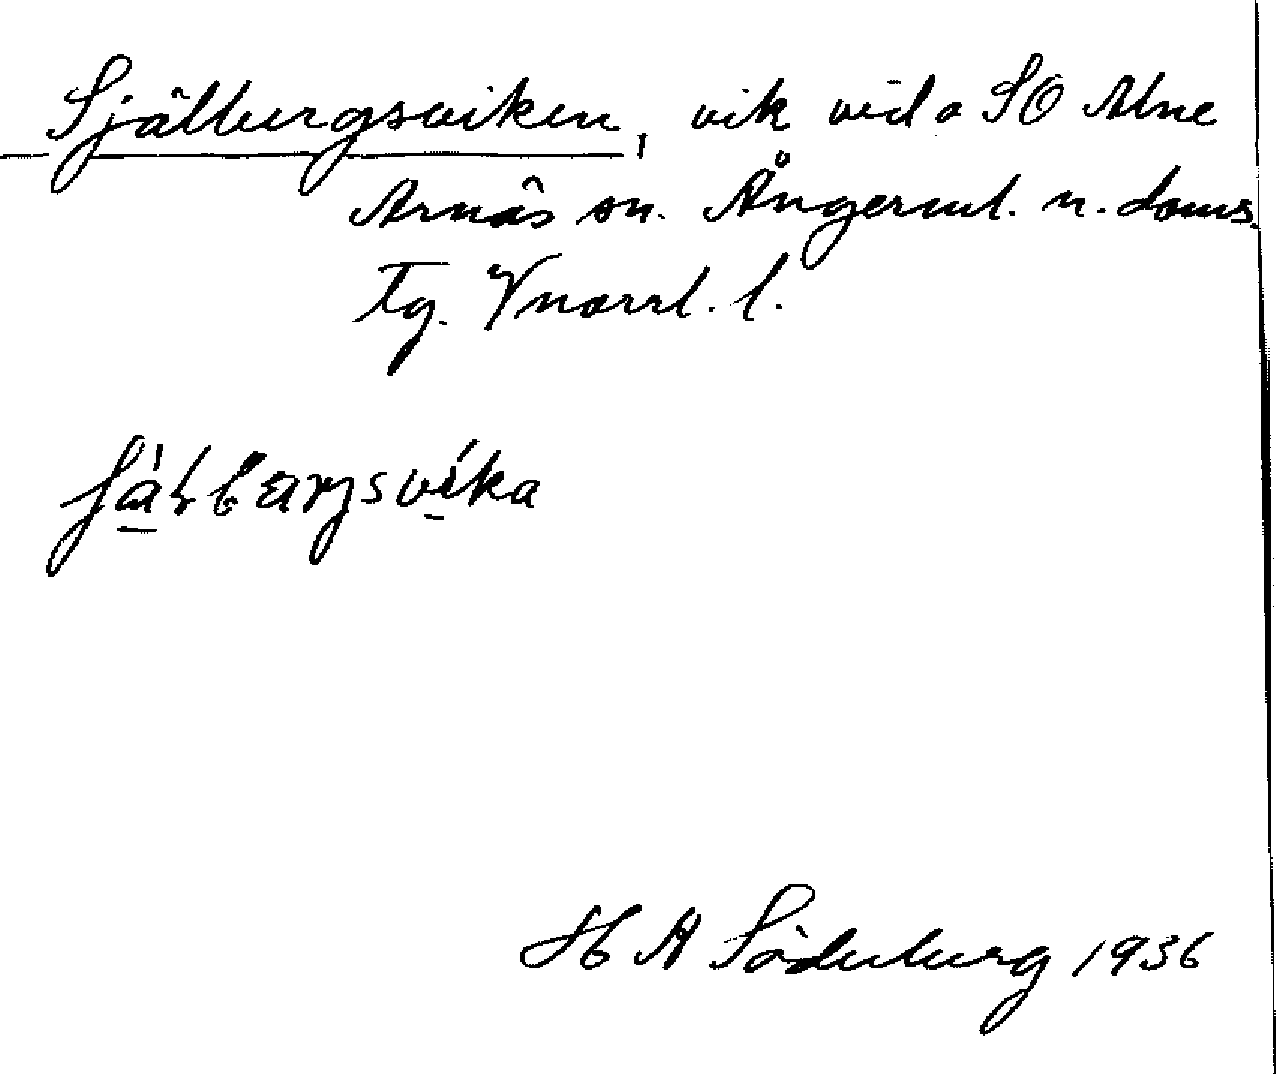 Själbergsviken, vik vid o SO Alne
Arnäs sn. Ångerml. n. doms.
Tg. Vnorrl. l.
H A Söderberg 1936